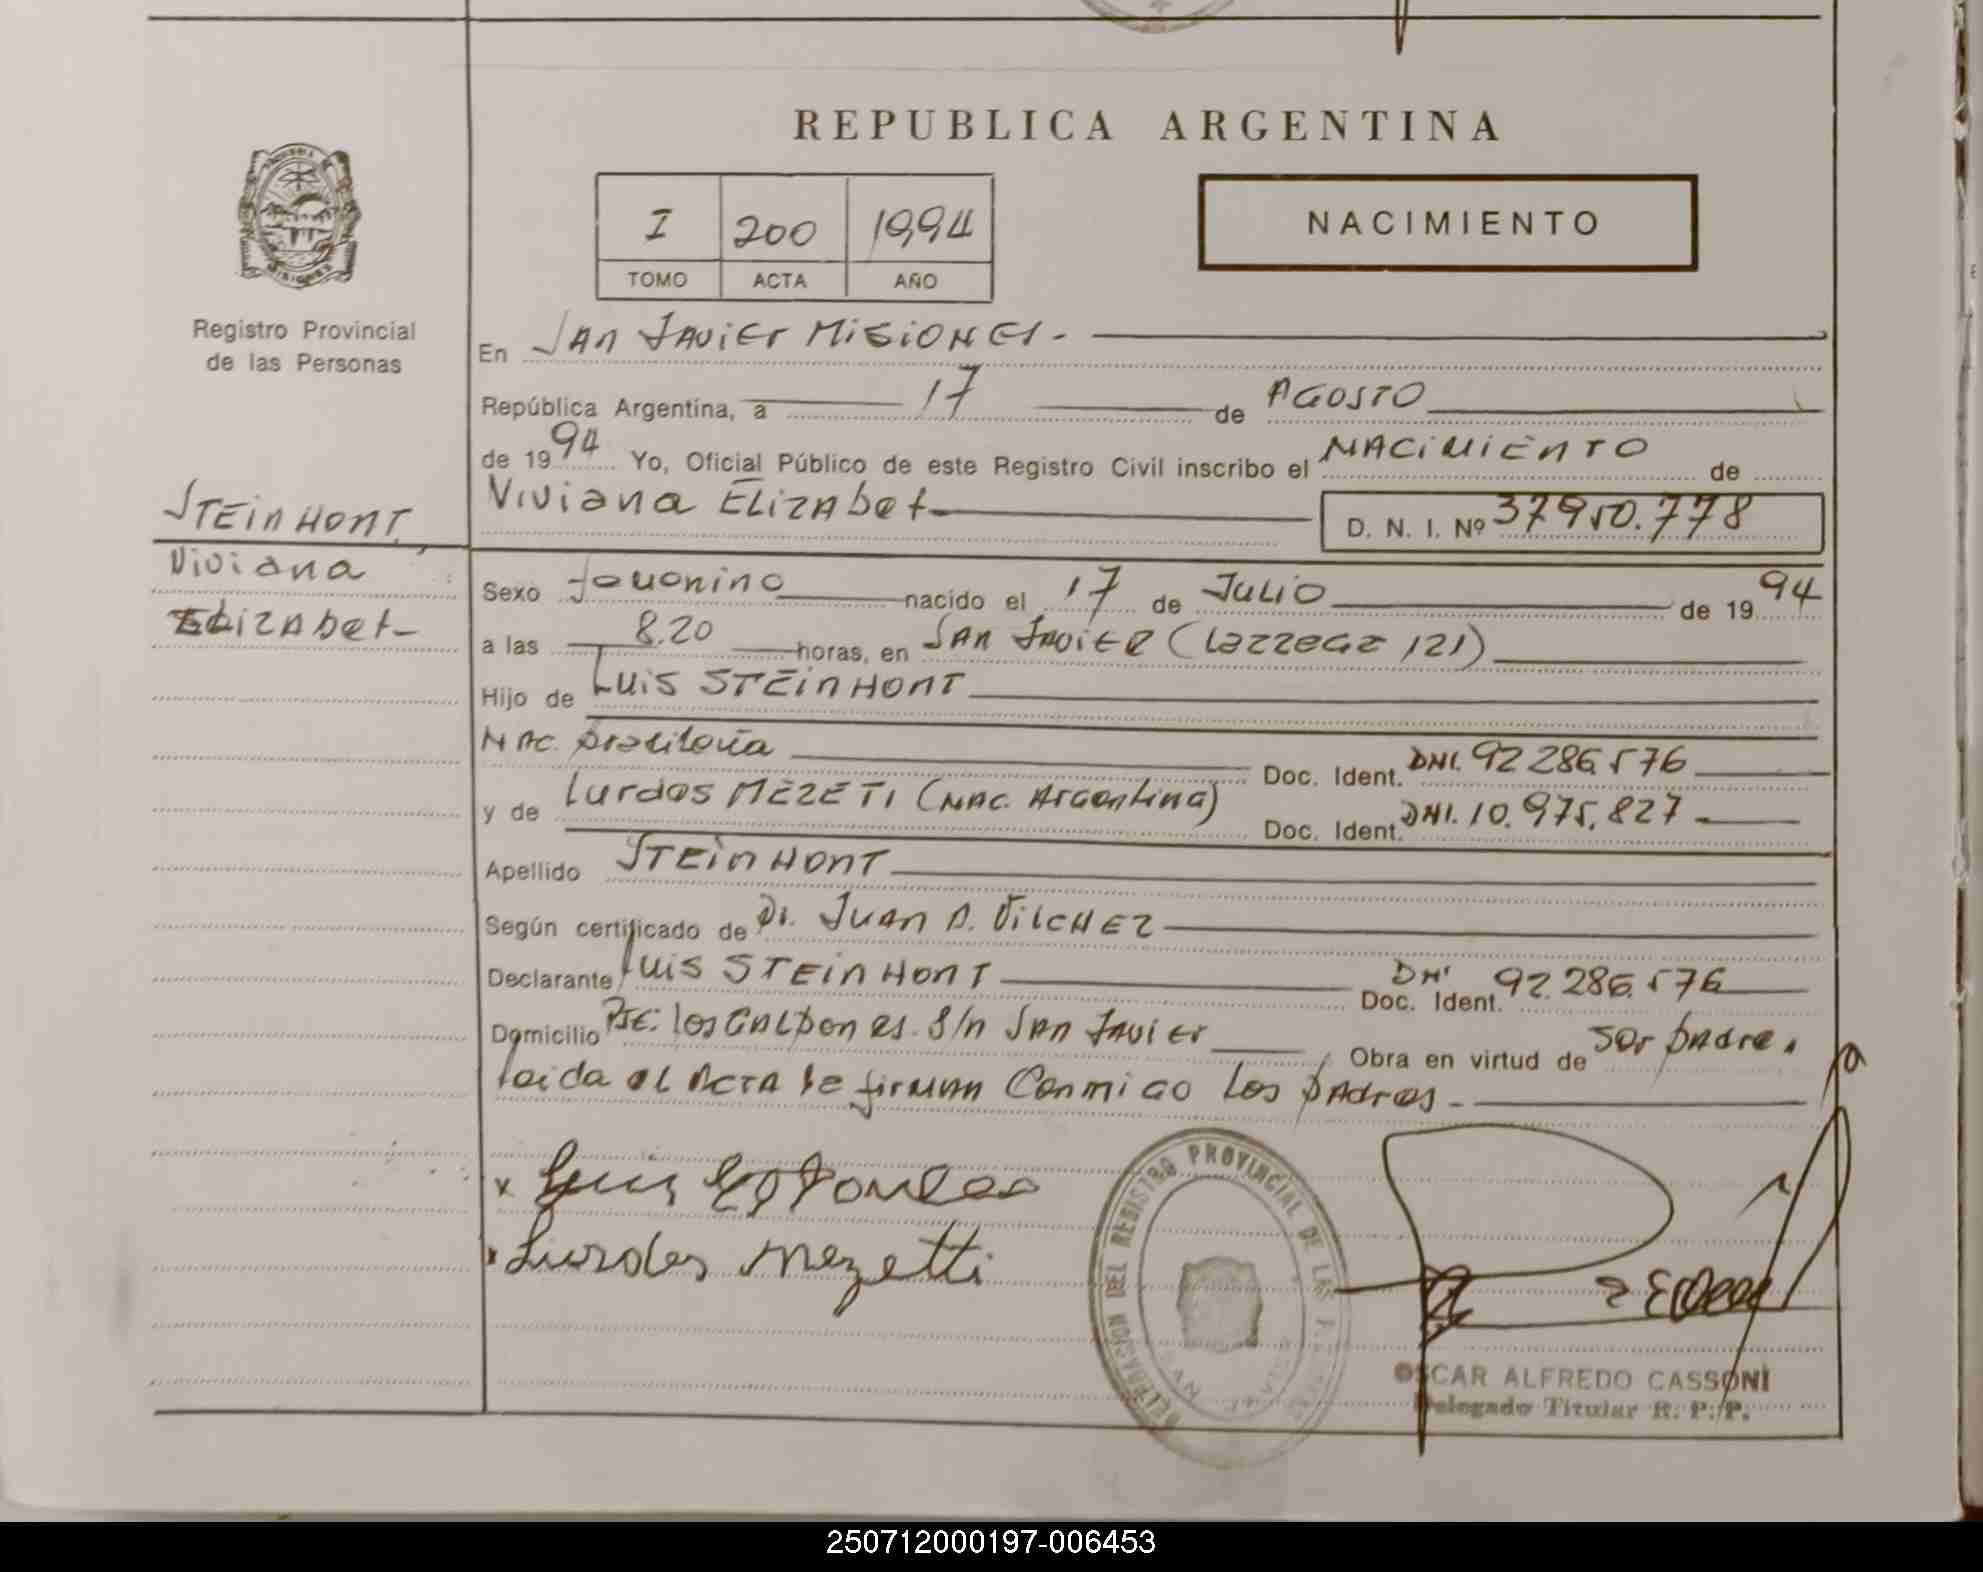 REPUBLICA ARGENTINA
I 200 1994
TOMO ACTA AÑO
NACIMIENTO
Registro Provincial
de las Personas
En SAN JAVIER MISIONES.-
República Argentina, a 17 de AGOSTO
de 1994 Yo, Oficial Público de este Registro Civil inscribo el NACIMIENTO de
Viviana ELIZAbet
D. N. I. Nº 37950.778
STEINHONT
Viviana
ELIZAbet-
Sexo femenino nacido el 17 de JULIO de 1994
a las 8.20 horas, en SAN JAVIER (
121)
Hijo de LUIS STEINHONT
NAC. brasileña Doc. Ident. DNI. 92286576
y de Lurdes MEZETI (NAC. Argentina) Doc. Ident. DNI. 10.975.827
Apellido STEINHONT
Según certificado de Dr. JUAN A. VILCHEZ
Declarante LUIS STEINHONT Doc. Ident. DNI 92.286.576
Domicilio PJE. los GALPONES. S/n SAN JAVIER Obra en virtud de ser padre.
leida el ACTA la firman Conmigo Los padres.-
x Luis
x Lurdes Mezetti
DELEGACION DEL REGISTRO PROVINCIAL DE LAS
SAN
OSCAR ALFREDO CASSONI
Delegado Titular R. P. P.
250712000197-006453